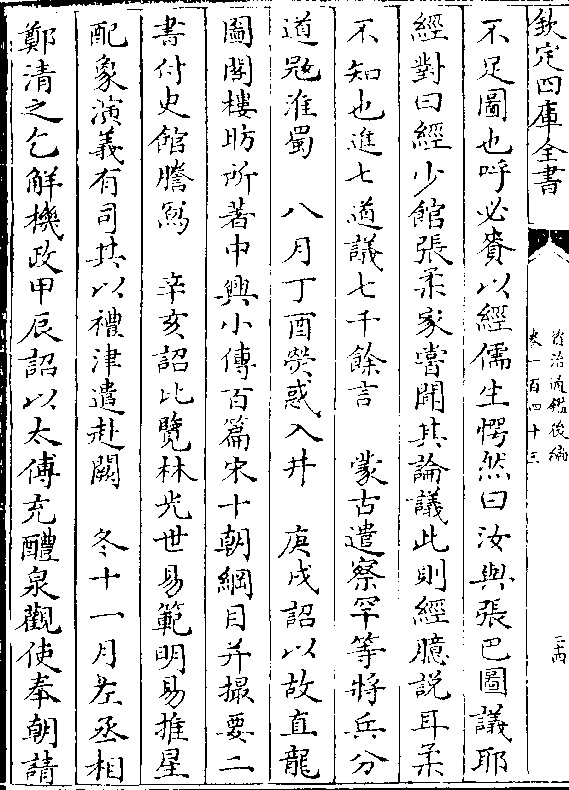 欽定四庫全書
資治通鑑後編
卷一百四十三
三四
不足圖也呼必賚以經儒生愕然曰汝與張巴圖議耶
經對曰經少館張柔家嘗聞其論議此則經臆說耳柔
不知也進七道議七千餘言　蒙古遣察罕等將兵分
道冦淮蜀　八月丁酉熒惑入井　庚戌詔以故直龍
圖閣樓昉所著中興小傳百篇宋十朝綱目并撮要二
書付史館謄寫　辛亥詔比覽林光世易範明易推星
配象演義有司其以禮津遣赴闕　冬十一月左丞相
鄭清之乞解機政甲辰詔以太傅充醴泉觀使奉朝請